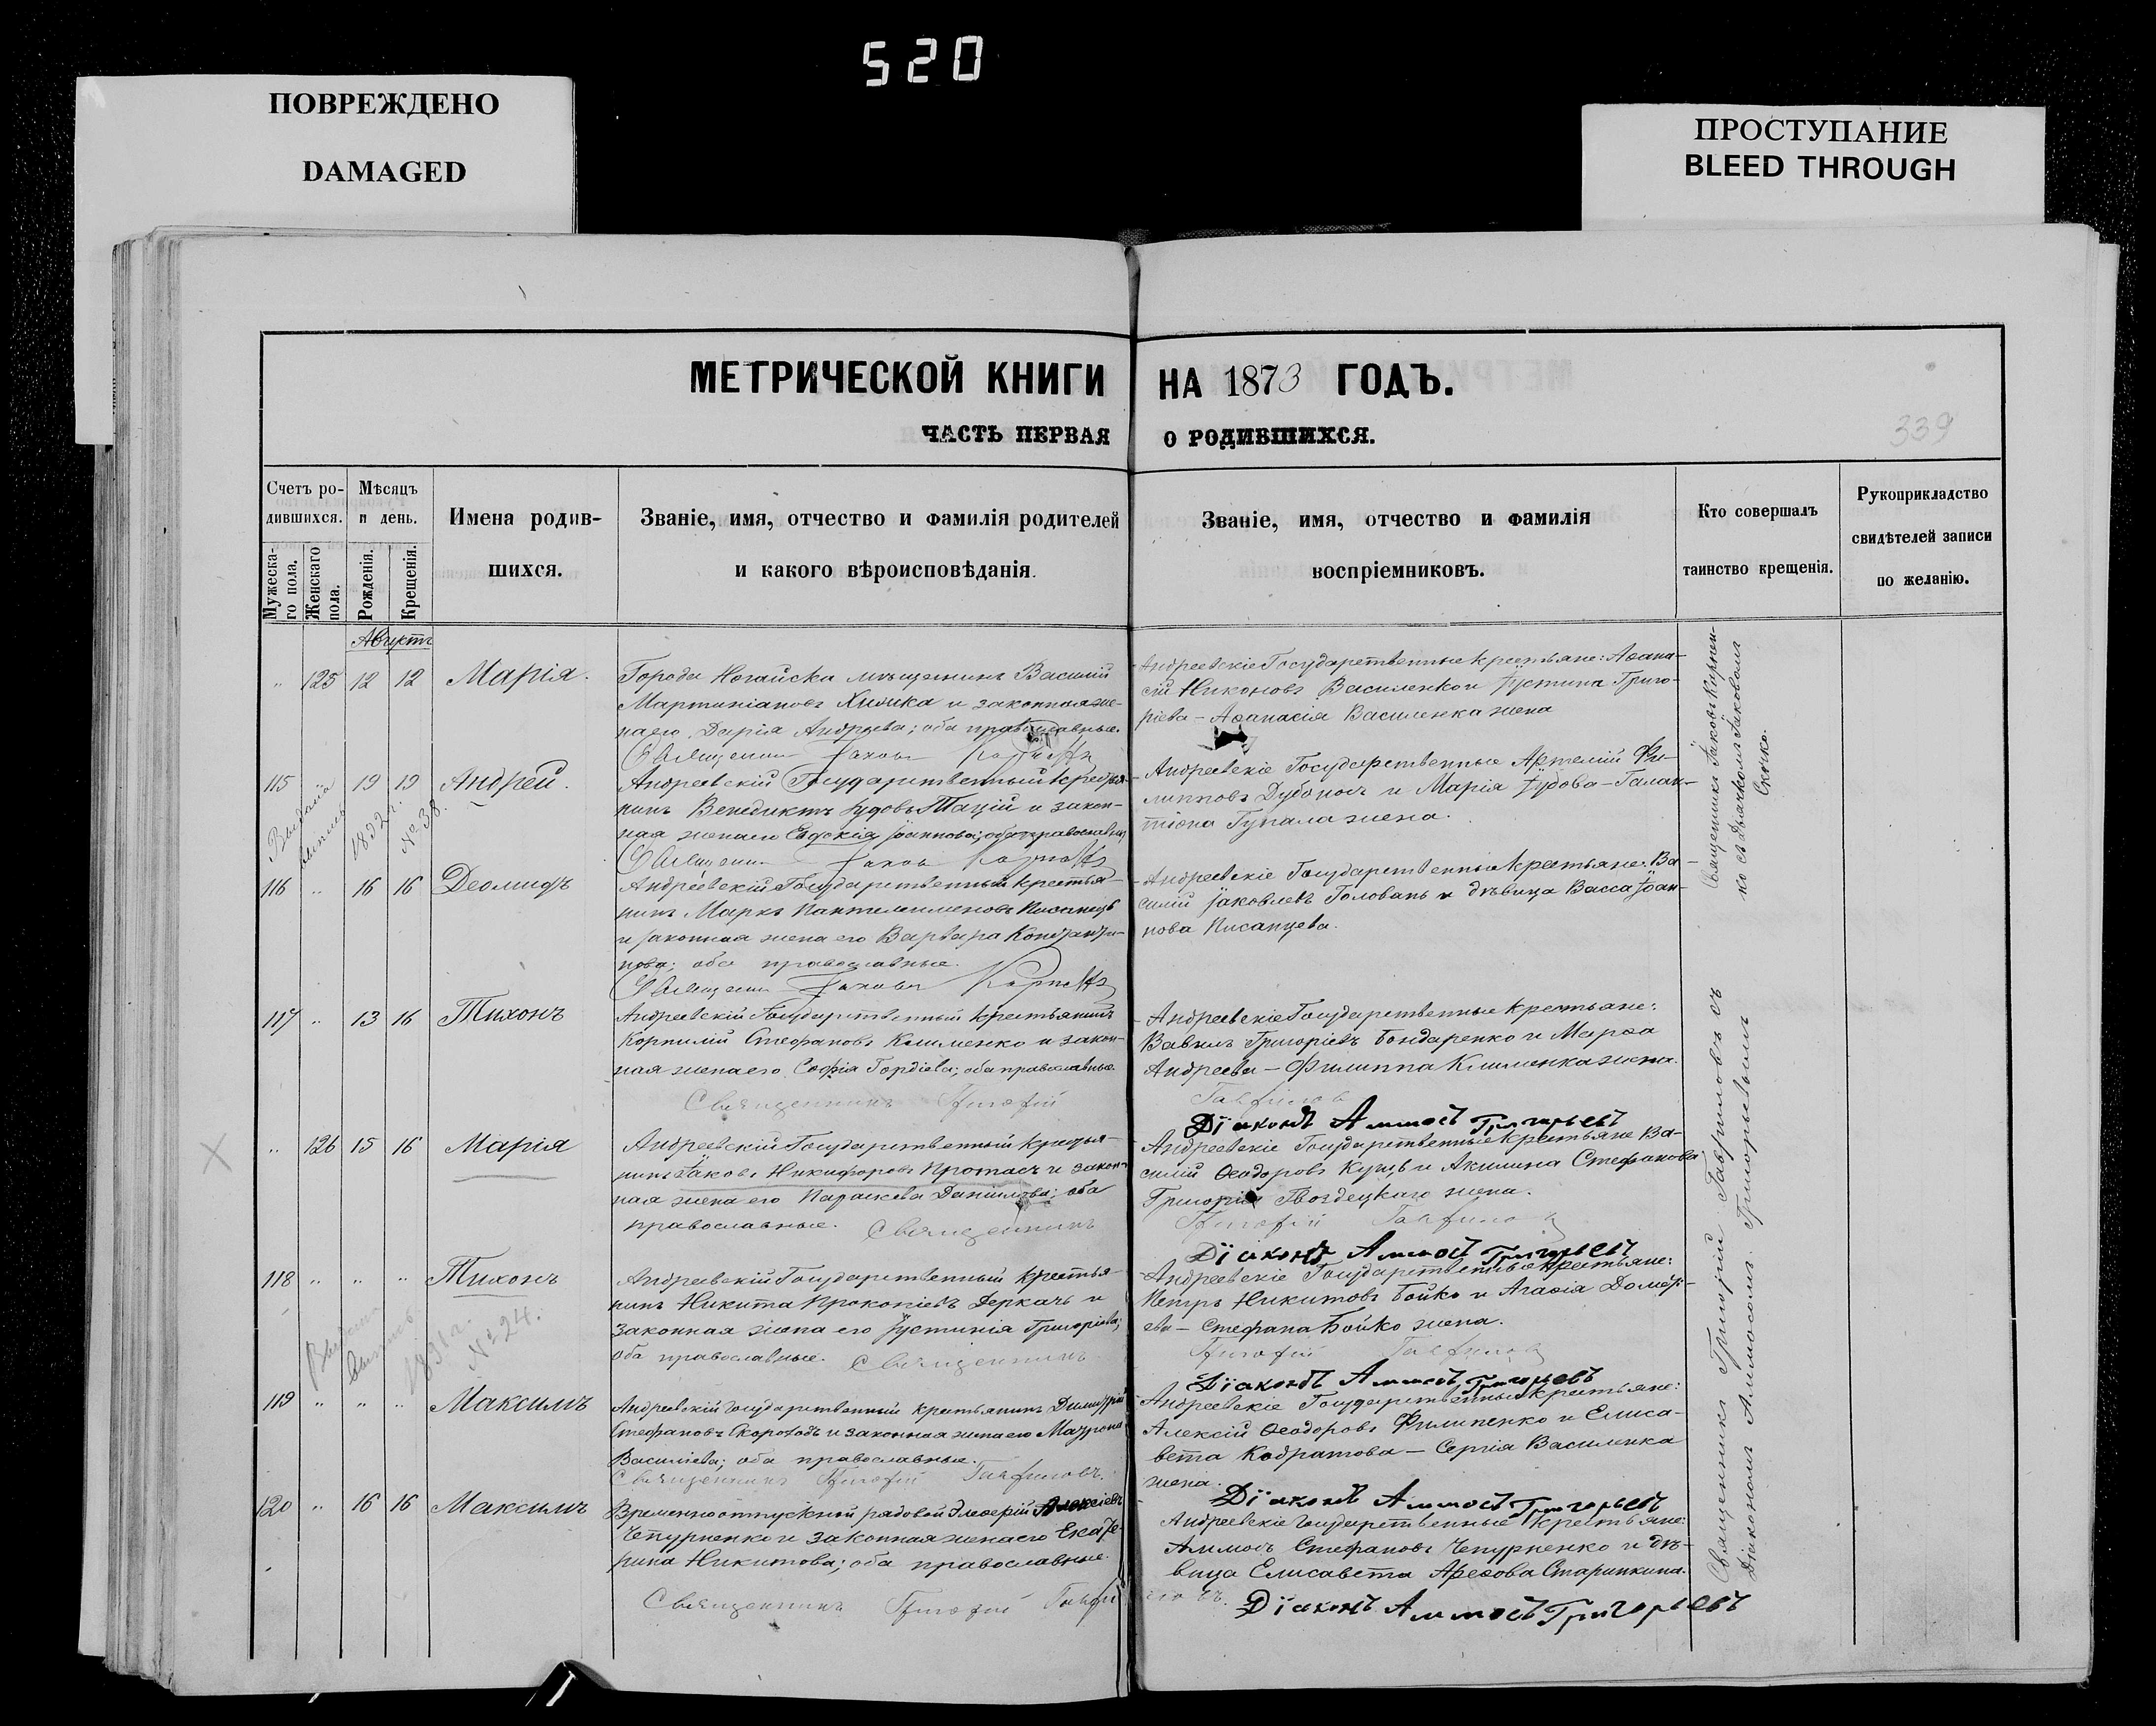 520
ПОВРЕЖДЕНО
DAMAGED
ПРОСТУПАНИЕ
BLEED THROUGH
МЕТРИЧЕСКОЙ КНИГИ НА 1873 ГОДЪ.
ЧАСТЬ ПЕРВАЯ О РОДИВШИХСЯ.
339
Счетъ ро-
дившихся.
Мужеска-
го пола.
Женскаго
пола.
Мѣсяцъ
и день.
Рожденія.
Крещенія.
Имена родив-
шихся.
Званіе, имя, отчество и фамилія родителей
и какого вѣроисповѣданія.
Званіе, имя, отчество и фамилія
воспріемниковъ.
Кто совершалъ
таинство крещенія.
Рукоприкладство
свидѣтелей записи
по желанію.
Августъ
" 125 12 12 Марія.
Города Ногайска мѣщанинъ Василій
Мартиніановъ и законная же-
на его Дарія Андреева; оба православные.
Священникъ Іаковъ
Андреевскіе Государственные крестьяне: Аѳана-
сій Никоновъ Василенко и Іустина Григо-
ріева – Аѳанасія Василенка жена
115 " 19 19 Андрей.
Андреевскій Государственный крестья-
нинъ Венедиктъ Іудовъ и закон-
ная жена его Евдокія Іоаннова; оба православные
Священникъ Іаковъ
Андреевскіе Государственные Артемій Фи-
липповъ и Марія Іудова – Галак-
тіона Гупала жена.
№ 38.
116 " 16 16 Деомидъ
Андреевскій Государственный крестья-
нинъ Маркъ Пантелеимоновъ Писанецъ
и законная жена его Варвара Константи-
нова; оба православные.
Священникъ Іаковъ
Андреевскіе Государственные крестьяне: Ва-
силій Іаковлевъ Головань и дѣвица Васса Іоан-
нова Писанцева.
117 " 13 16 Тихонъ
Андреевскій Государственный крестьянинъ
Корнилій Стефановъ Клименко и закон-
ная жена его София Гордіева; оба православные.
Священникъ Григорій Гавриловъ
Андреевскіе Государственные крестьяне:
Вавилъ Григоріевъ Бондаренко и Марѳа
Андреева – Филиппа Клименка жена.
Діаконъ Аммосъ Григорьевъ
" 126 15 16 Марія
Андреевскій Государственный крестья-
нинъ Іаковъ Никифоровъ Протасъ и закон-
ная жена его Параскева Даніилова; оба
православные. Священникъ
Андреевскіе Государственные крестьяне Ва-
силій Ѳеодоровъ и Акилина Стефанова
Григорія Гвоздецкаго жена.
Григорій Гавриловъ
Діаконъ Аммосъ Григорьевъ
118 " " " Тихонъ
Андреевскій Государственный крестья-
нинъ Никита Прокопіевъ Деркачъ и
законная жена его Іустинія Григоріева;
оба православные. Священникъ
Андреевскіе Государственные крестьяне:
Петръ Никитовъ Бойко и Агаѳія
– Стефана Бойко жена.
Григорій Гавриловъ
Діаконъ Аммосъ Григорьевъ
№ 24.
119 " " " Максимъ
Андреевскій государственный крестьянинъ Димитрій
Стефановъ Скороходъ и законная жена его Матрона
Василіева; оба православные.
Священникъ Григорій Гавриловъ.
Андреевскіе Государственные крестьяне:
Алексій Ѳеодоровъ Филипенко и Елиса-
вета Кодратова – Сергія Василенка
жена.
Діаконъ Аммосъ Григорьевъ
120 " 16 16 Максимъ
Временноотпускной рядовой Элеѳерій Алексіевъ
Чепурненко и законная жена его Екате-
рина Никитова; оба православные.
Священникъ Григорій Гавриловъ.
Андреевскіе государственные крестьяне:
Аммосъ Стефановъ Чепурненко и дѣ-
вица Елисавета Старинкина.
Діаконъ Аммосъ Григорьевъ
Священникъ Іаковъ Корнен-
ко съ дьячкомъ Іаковомъ
Священникъ Григорій Гавриловъ съ
Діакономъ Аммосомъ Григорьевымъ